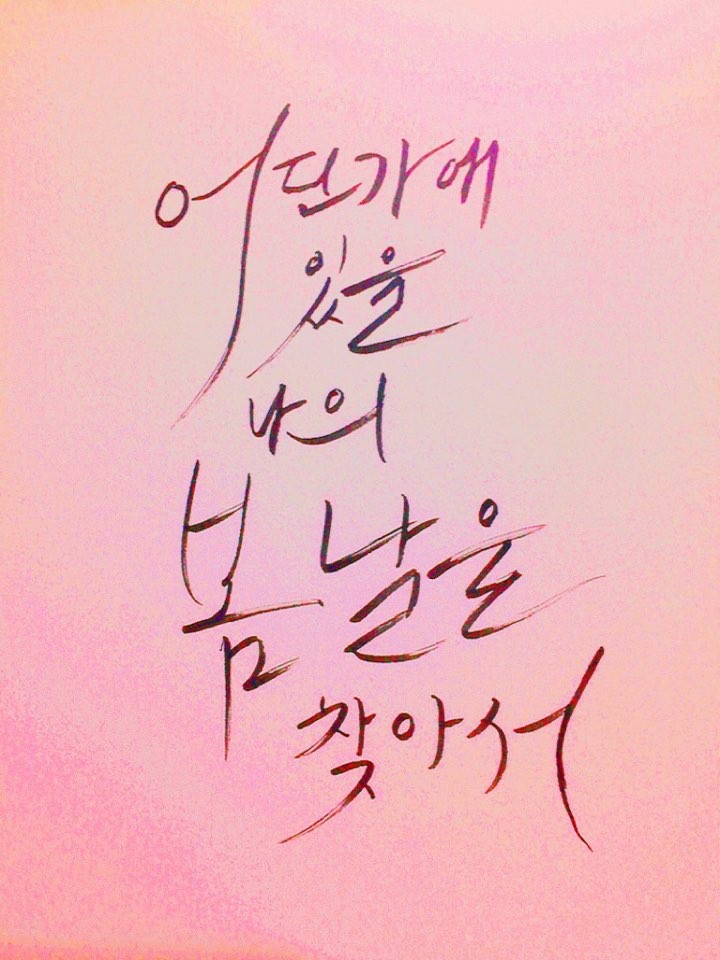 어딘가에
있을
나의
봄날을
찾아서